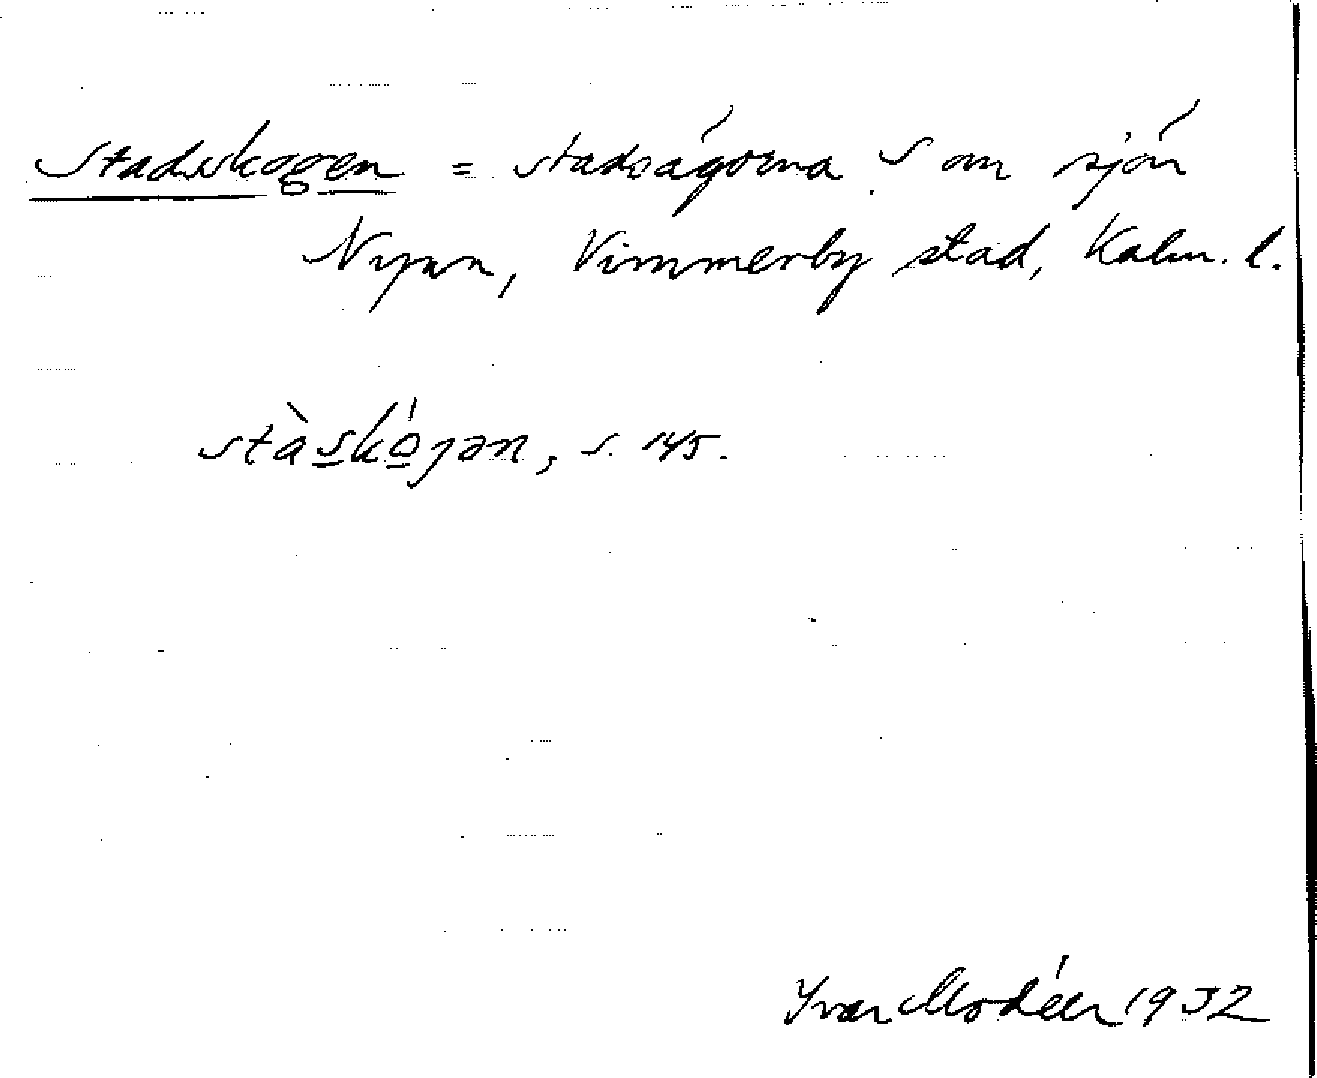 Stadsskogen = stadsägorna S om sjön
Nyxn, Vimmerby stad, Kalm. l.
stàskóɡən, s. 145.
Ivar Modéer 1932